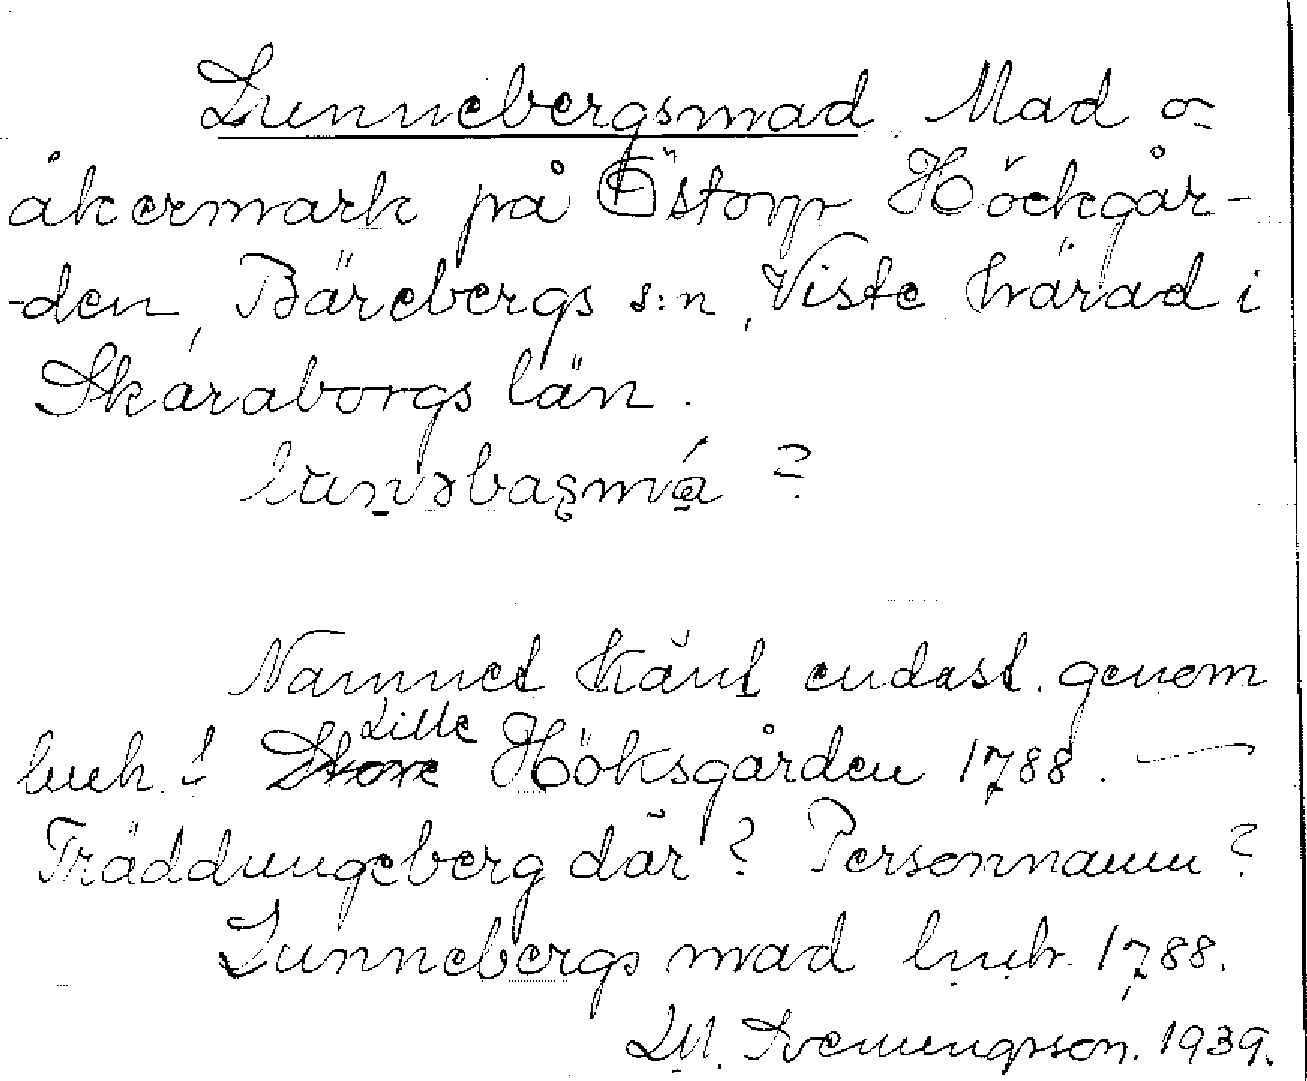 Lunnebergsmad. Mad o
åkermark på Östorp Höckgår-
-den, Bärebergs s:n, Viste härad i
Skaraborgs län.
?
Namnet känt endast genom
Lille
luh. ! Store Höksgården 1788. —
Träddungeberg där? Personnamn?
Lunnebergs mad luh. 1788.
1939.